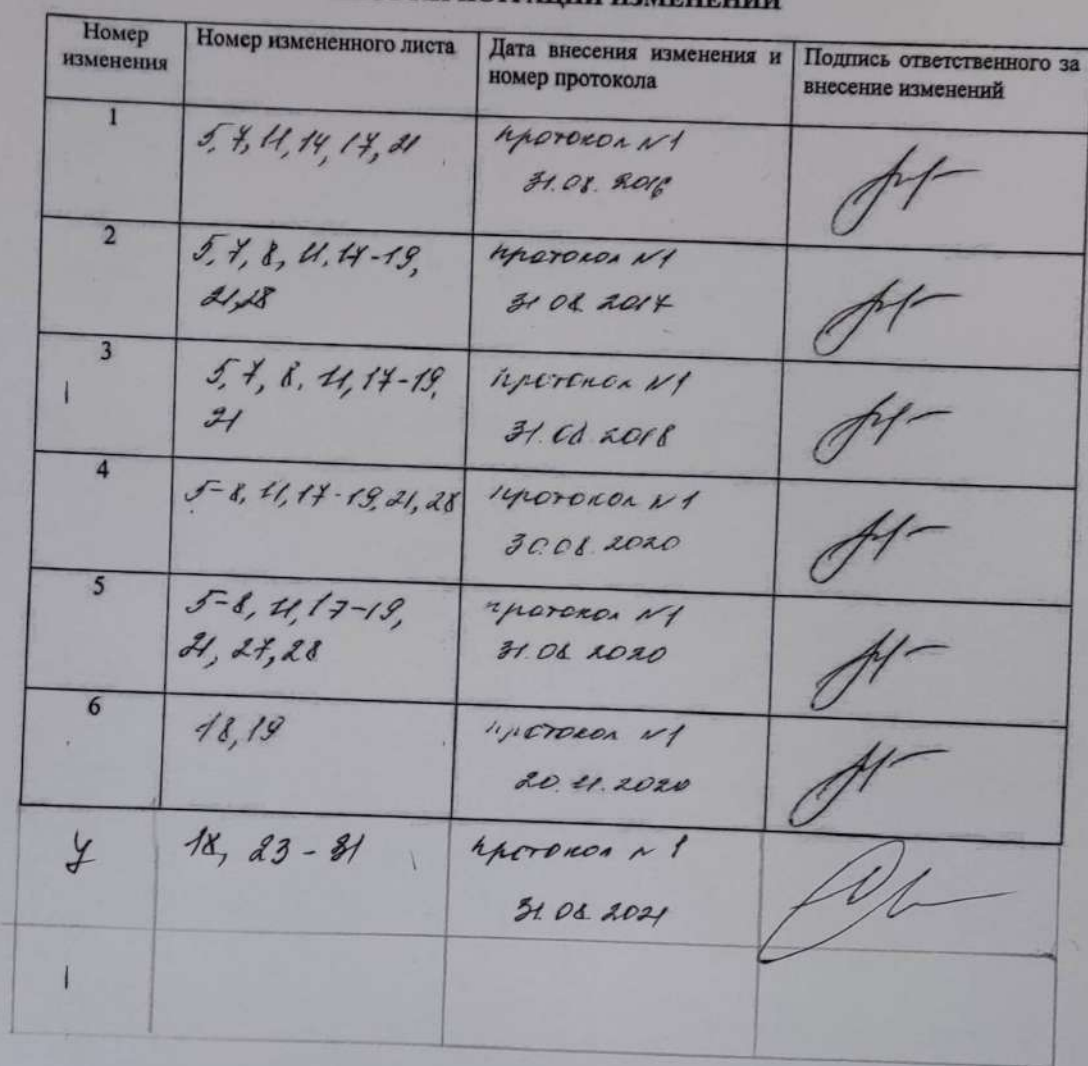 ИЗМЕНЕНИЙ
Номер изменения
Номер измененного листа
Дата внесения изменения и номер протокола
Подпись ответственного за внесение изменений
1
5, 7, 11, 14, 17, 21
протокол №1
31.08. 2016
2
5, 7, 8, 11, 17-19,
21,28
протокол №1
31 08 2017
3
5, 7, 8, 11, 17-19,
21
протокол №1
31.08 2018
4
5-8, 11, 17-19, 21, 28
протокол №1
30.08. 2020
5
5-8, 11, 17-19,
21, 27, 28
протокол №1
31.08 2020
6
18, 19
протокол №1
20. 11. 2020
7
18, 23 - 31
протокол № 1
31.08. 2021